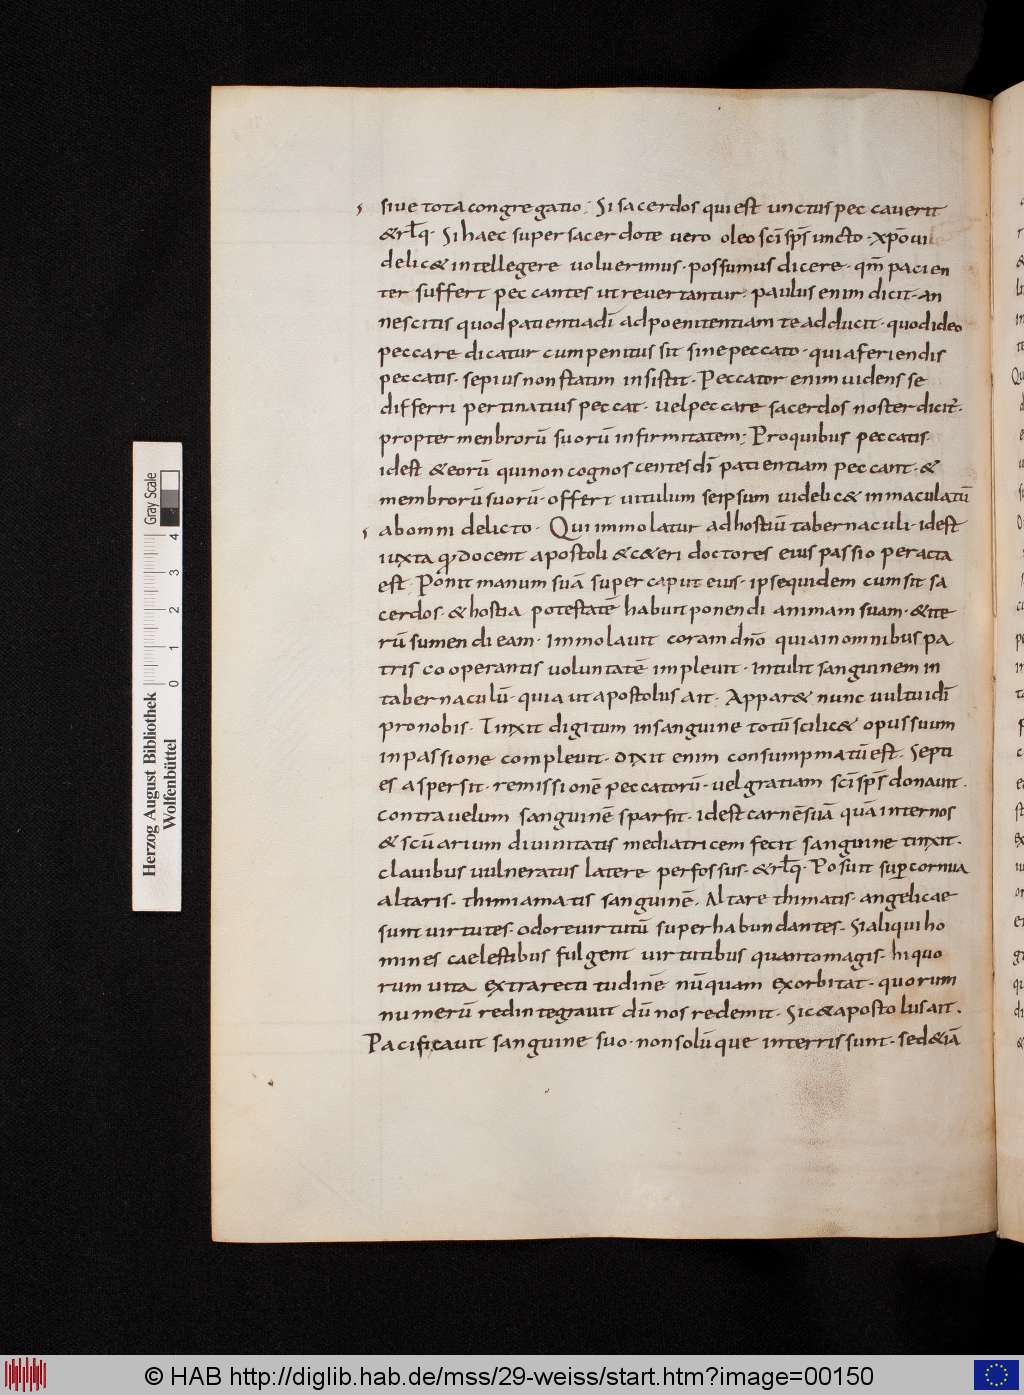 siue tota congregatio; Si sacerdos qui est unctus peccauerit
&rl̅q. Si haec super sacerdote uero oleo sc̅i sp̅s uncto. xp̅o ui
delic& intellegere uoluerimus. possumus dicere. qm̅ pacien
ter suffert peccantes ut reuertantur. paulus enim dicit. an
nescitis quod patientia di̅ ad poenitentiam te adducit. quod ideo
peccare dicatur cum penitus sit sine peccato. quia feriendis
peccatis. sepius non statim insistit. Peccator enim uidens se
differri pertinatius peccat. uel peccare sacerdos noster dicit̅.
propter menbroru̅ suoru̅ infirmitatem; Pro quibus peccatis.
id est & eoru̅ qui non cognoscentes di̅ patientiam peccant. &
membroru̅ suoru̅. offert uitulum seipsum uidelic& inmaculatu̅
ab omni delicto. Qui immolatur ad hostiu̅ tabernaculi. id est
iuxta q; docent apostoli & c&eri doctores eius passio peracta
est. Ponit manum sua̅ super caput eius. ipse quidem cum sit sa
cerdos. & hostia potestate̅ habuit ponendi animam suam. & ite
ru̅ sumendi eam. Immolauit coram dn̅o quia in omnibus pa
tris cooperantis uoluntate̅ impleuit. Intulit sanguinem in
tabernaculu̅. quia ut apostolus ait; Appar& nunc uultui di̅
pro nobis. Tinxit digitum in sanguine totu̅ scilic& opus suum
in passione compleuit. dixit enim consumpmatu̅ est. Septi
es aspersit. remissione̅ peccatoru̅. uel gratiam sc̅i sp̅s donauit.
contra uelum sanguine̅ sparsit. id est carne̅ sua̅ qua̅ inter nos
& scu̅arium diuinitatis mediatricem fecit sanguine tinxit.
clauibus uulneratus latere perfossus. &rl̅q. Posuit sup̲ cornua
altaris. thimiamatis sanguine̅. Altare thimatis. angelicae
sunt uirtutes. odore uirtutu̅ superhabundantes. Si aliqui ho
mines caelestibus fulgent uirtutibus quanto magis. hi quo
rum uita extra rectitudine̅ nu̅quam exorbitat. quorum
numeru̅ redintegrauit du̅ nos redemit. Sic & apostolus ait.
Pacificauit sanguine suo. non solu̅ que in terris sunt. sed & ia̅
Gray Scale
4
3
2
1
0
Herzog August Bibliothek
Wolfenbüttel
© HAB http://diglib.hab.de/mss/29-weiss/start.htm?image=00150